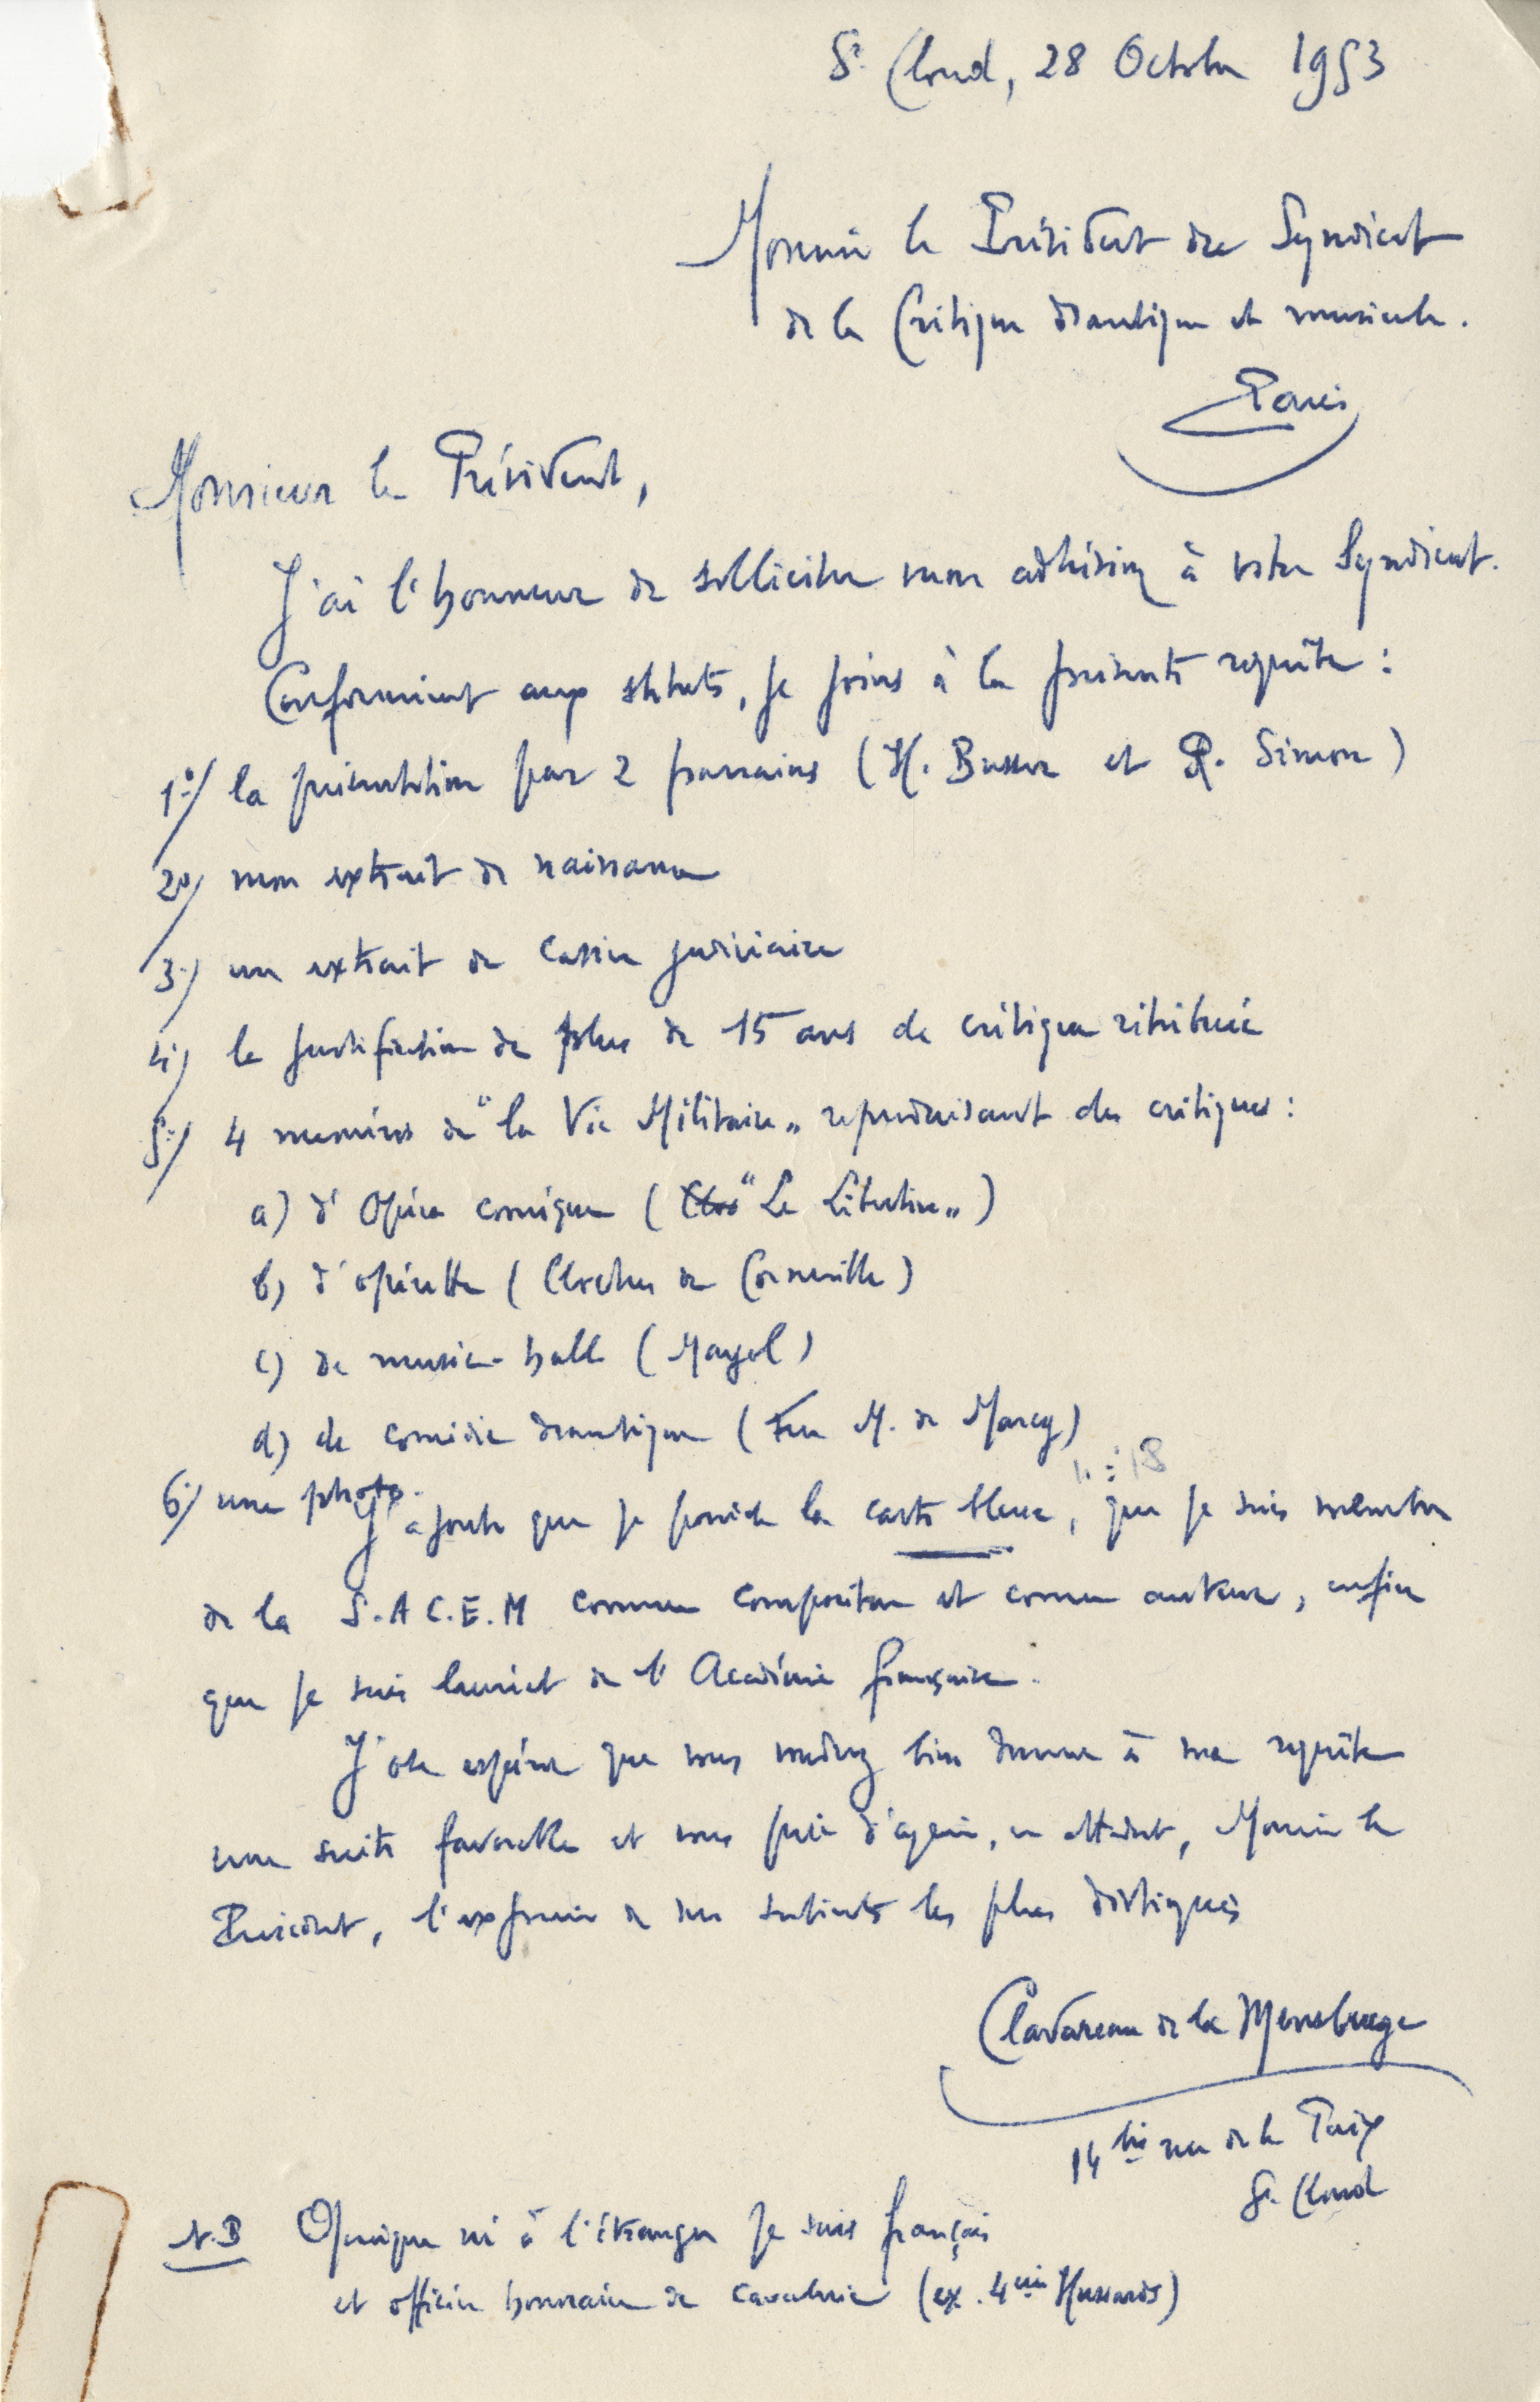 St Cloud, 28 Octobre 1953
Monsieur le Président du Syndicat
de la Critique dramatique et musicale.
Paris
Monsieur le Président,
J'ai l'honneur de solliciter mon adhésion à votre Syndicat.
Conformément aux statuts, je joins à la présente requête :
1°/ la présentation par 2 parrains (H. Busser et R. Simon)
2°/ mon extrait de naissance
3°/ un extrait de casier judiciaire
4°/ la justification de plus de 15 ans de critique rétribuée
5°/ 4 numéros de "la Vie Militaire" reproduisant des critiques :
a) d'Opéra comique ( "Le Libertin")
b) d'opérette (Cloches de Corneville)
c) de music-hall (Mayol)
d) de comédie dramatique (Feu M. de Marcy)
6°/ une photo.
J'ajoute que je possède la carte bleue, que je suis membre
de la S.A C.E.M comme compositeur et comme auteur, enfin
que je suis lauréat de l'Académie française.
J'ose espérer que vous voudrez bien donner à ma requête
une suite favorable et vous prie d'agréer, en attendant, Monsieur le
Président, l'expression de mes sentiments les plus distingués
Clavareau de la Mensbrugge
14 bis rue de la Paix
St Cloud
N.B Quoique né à l'étranger je suis français
et officier honoraire de cavalerie (ex. 4ème Hussards)